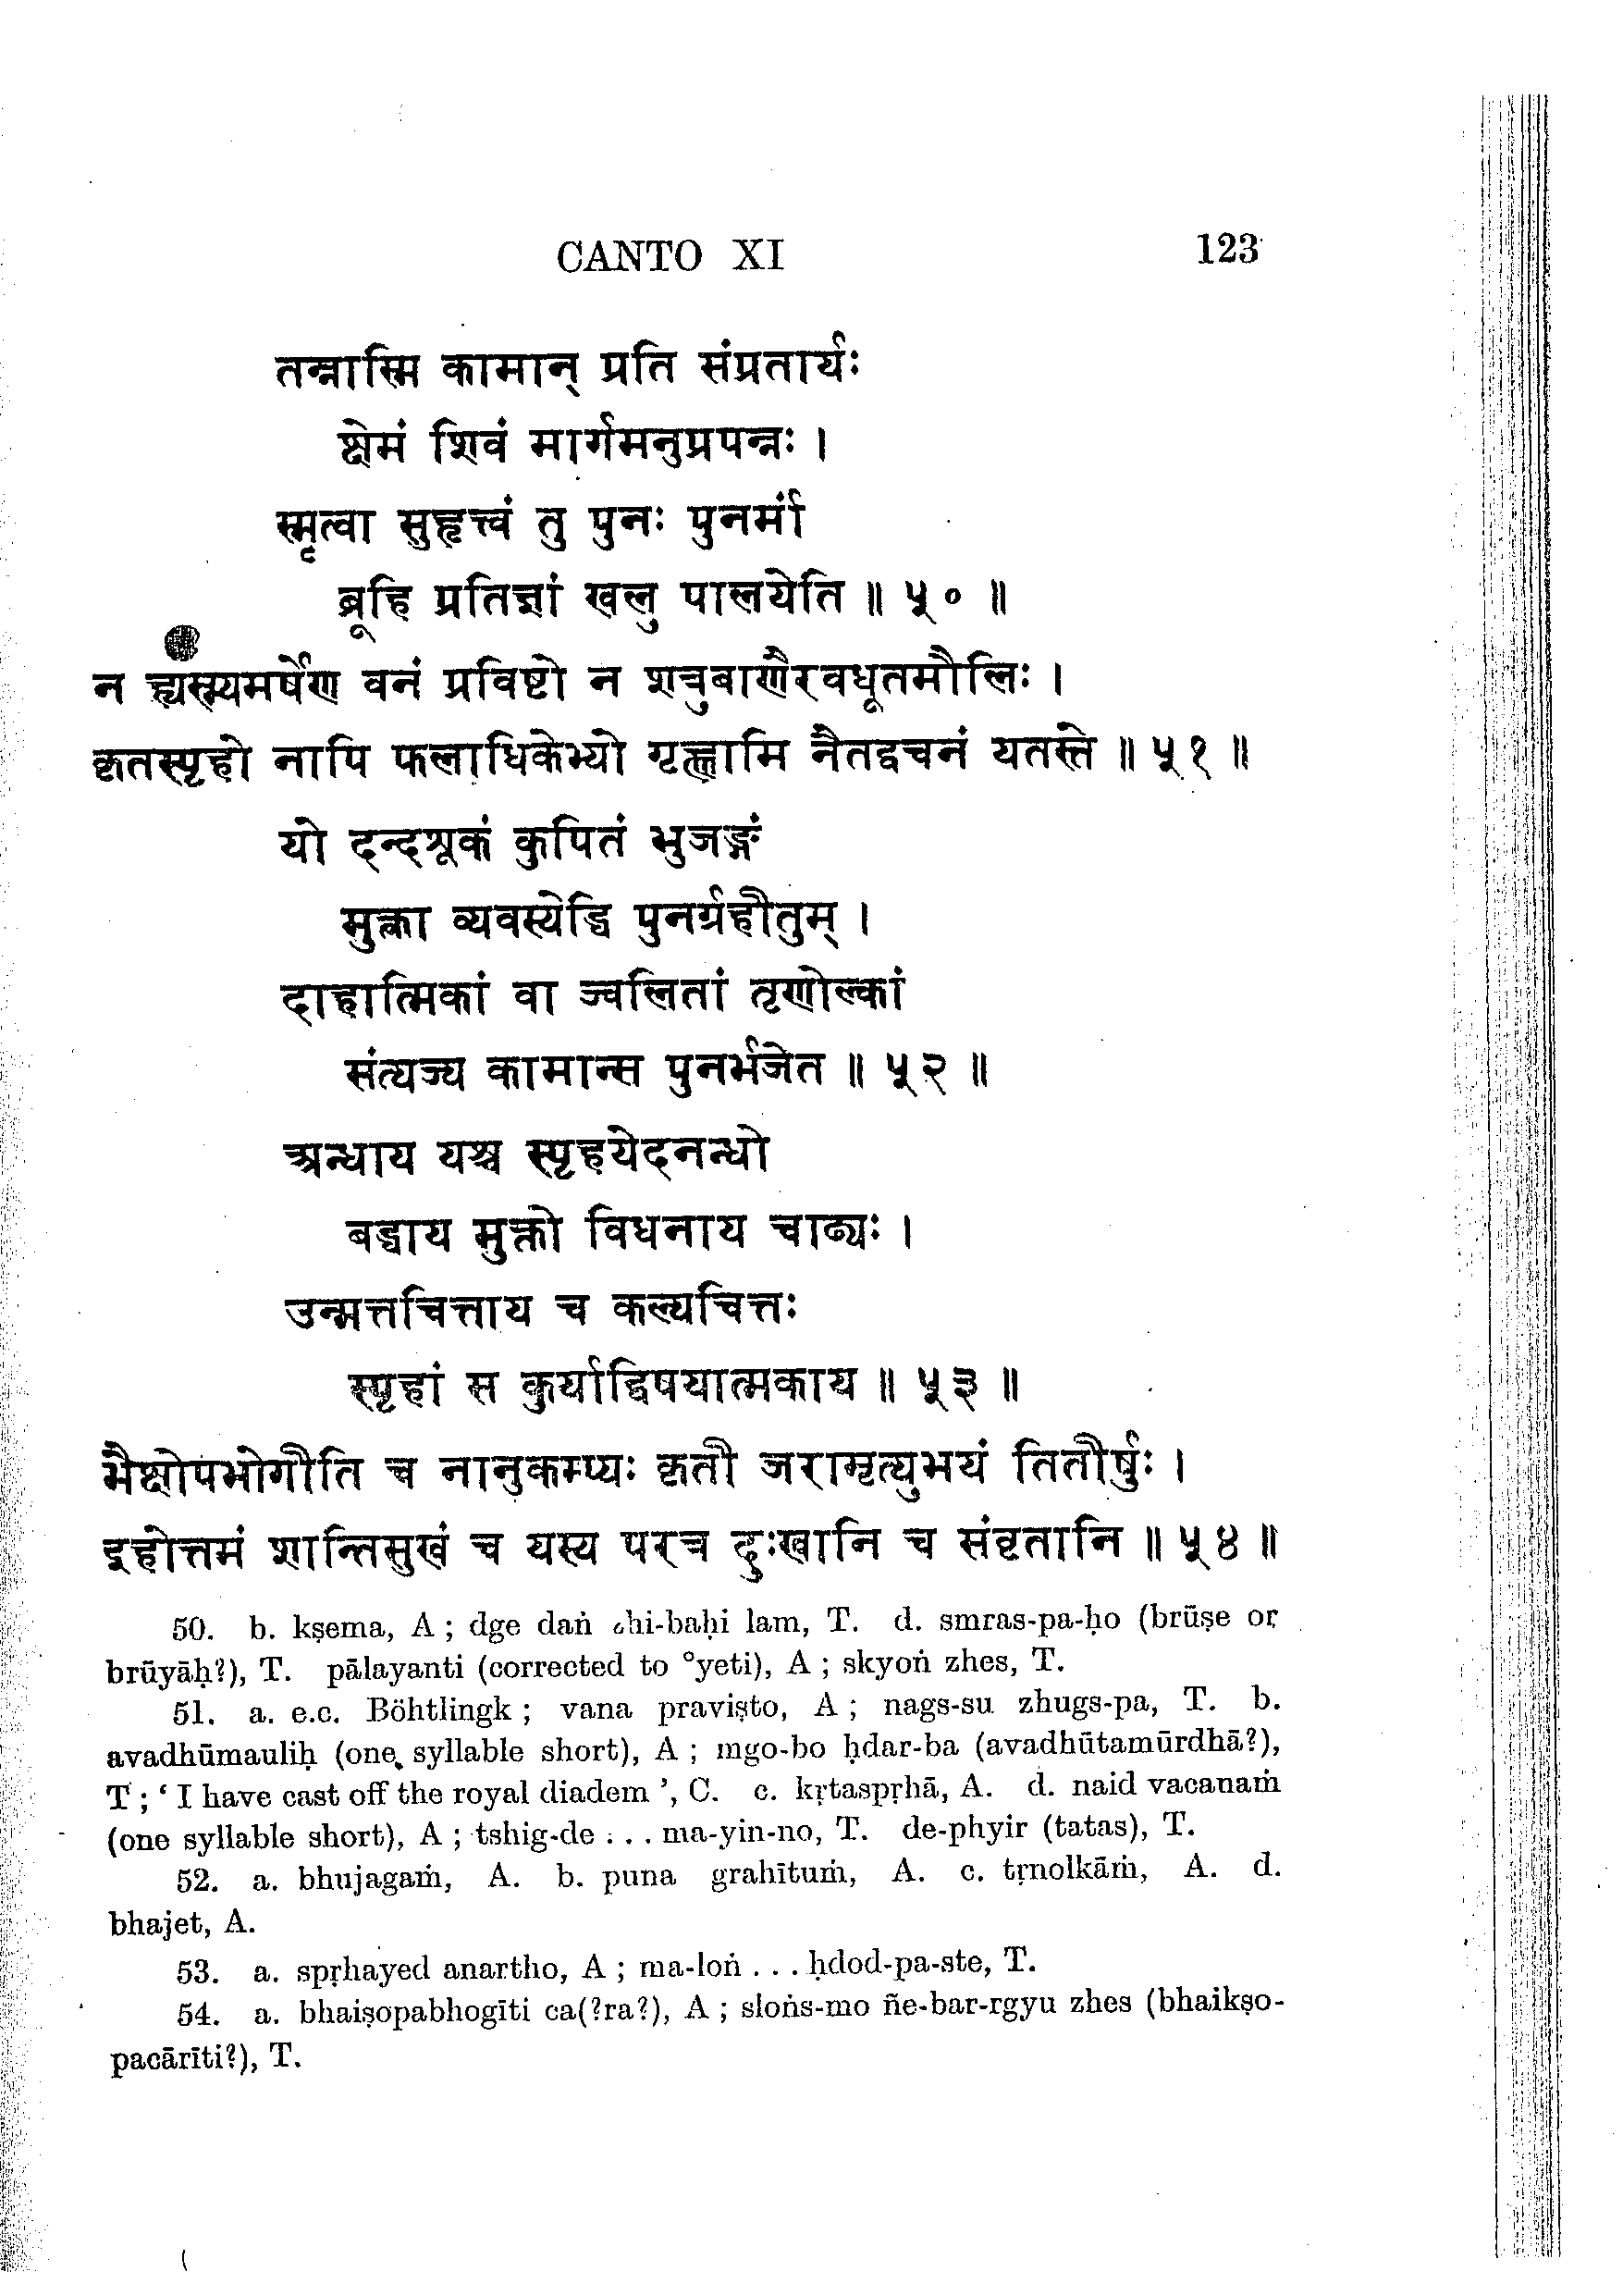 CANTO XI 123
तन्नास्मि कामान् प्रति संप्रतार्यः
क्षेमं शिवं मार्गमनुप्रपन्नः ।
स्मृत्वा सुहृत्त्वं तु पुनः पुनर्मां
ब्रूहि प्रतिज्ञां खलु पालयेति ॥ ५० ॥
न ह्यस्म्यमर्षेण वनं प्रविष्टो न शत्रुबाणैरवधूतमौलिः ।
कृतस्पृहो नापि फलाधिकेभ्यो गृह्णामि नैतद्वचनं यतस्ते ॥ ५१ ॥
यो दन्दशूकं कुपितं भुजङ्गं
मुक्त्वा व्यवस्येद्धि पुनर्ग्रहीतुम् ।
दाहात्मिकां वा ज्वलितां तृणोल्कां
संत्यज्य कामान्स पुनर्भजेत ॥ ५२ ॥
अन्धाय यश्च स्पृहयेदनन्धो
बद्धाय मुक्तो विधनाय चाढ्यः ।
उन्मत्तचित्ताय च कल्यचित्तः
स्पृहां स कुर्याद्विषयात्मकाय ॥ ५३ ॥
भैक्षोपभोगीति च नानुकम्प्यः कृती जरामृत्युभयं तितीर्षुः ।
इहोत्तमं शान्तिसुखं च यस्य परत्र दुःखानि च संवृतानि ॥ ५४ ॥
50. b. kṣema, A ; dge daṅ zhi-baḥi lam, T. d. smras-pa-ḥo (brūṣe or
brūyāḥ?), T. pālayanti (corrected to °yeti), A ; skyoṅ zhes, T.
51. a. e.c. Böhtlingk ; vana praviṣto, A ; nags-su zhugs-pa, T. b.
avadhūmauliḥ (one syllable short), A ; mgo-bo ḥdar-ba (avadhūtamūrdhā?),
T ; ‘ I have cast off the royal diadem ’, C. c. kṛtaspṛhā, A. d. naid vacanaṁ
(one syllable short), A ; tshig-de . . . ma-yin-no, T. de-phyir (tatas), T.
52. a. bhujagaṁ, A. b. puna grahītuṁ, A. c. tṛnolkāṁ, A. d.
bhajet, A.
53. a. spṛhayed anartho, A ; ma-loṅ . . . ḥdod-pa-ste, T.
54. a. bhaiṣopabhogīti ca(?ra?), A ; sloṅs-mo ñe-bar-rgyu zhes (bhaikṣo-
pacārīti?), T.